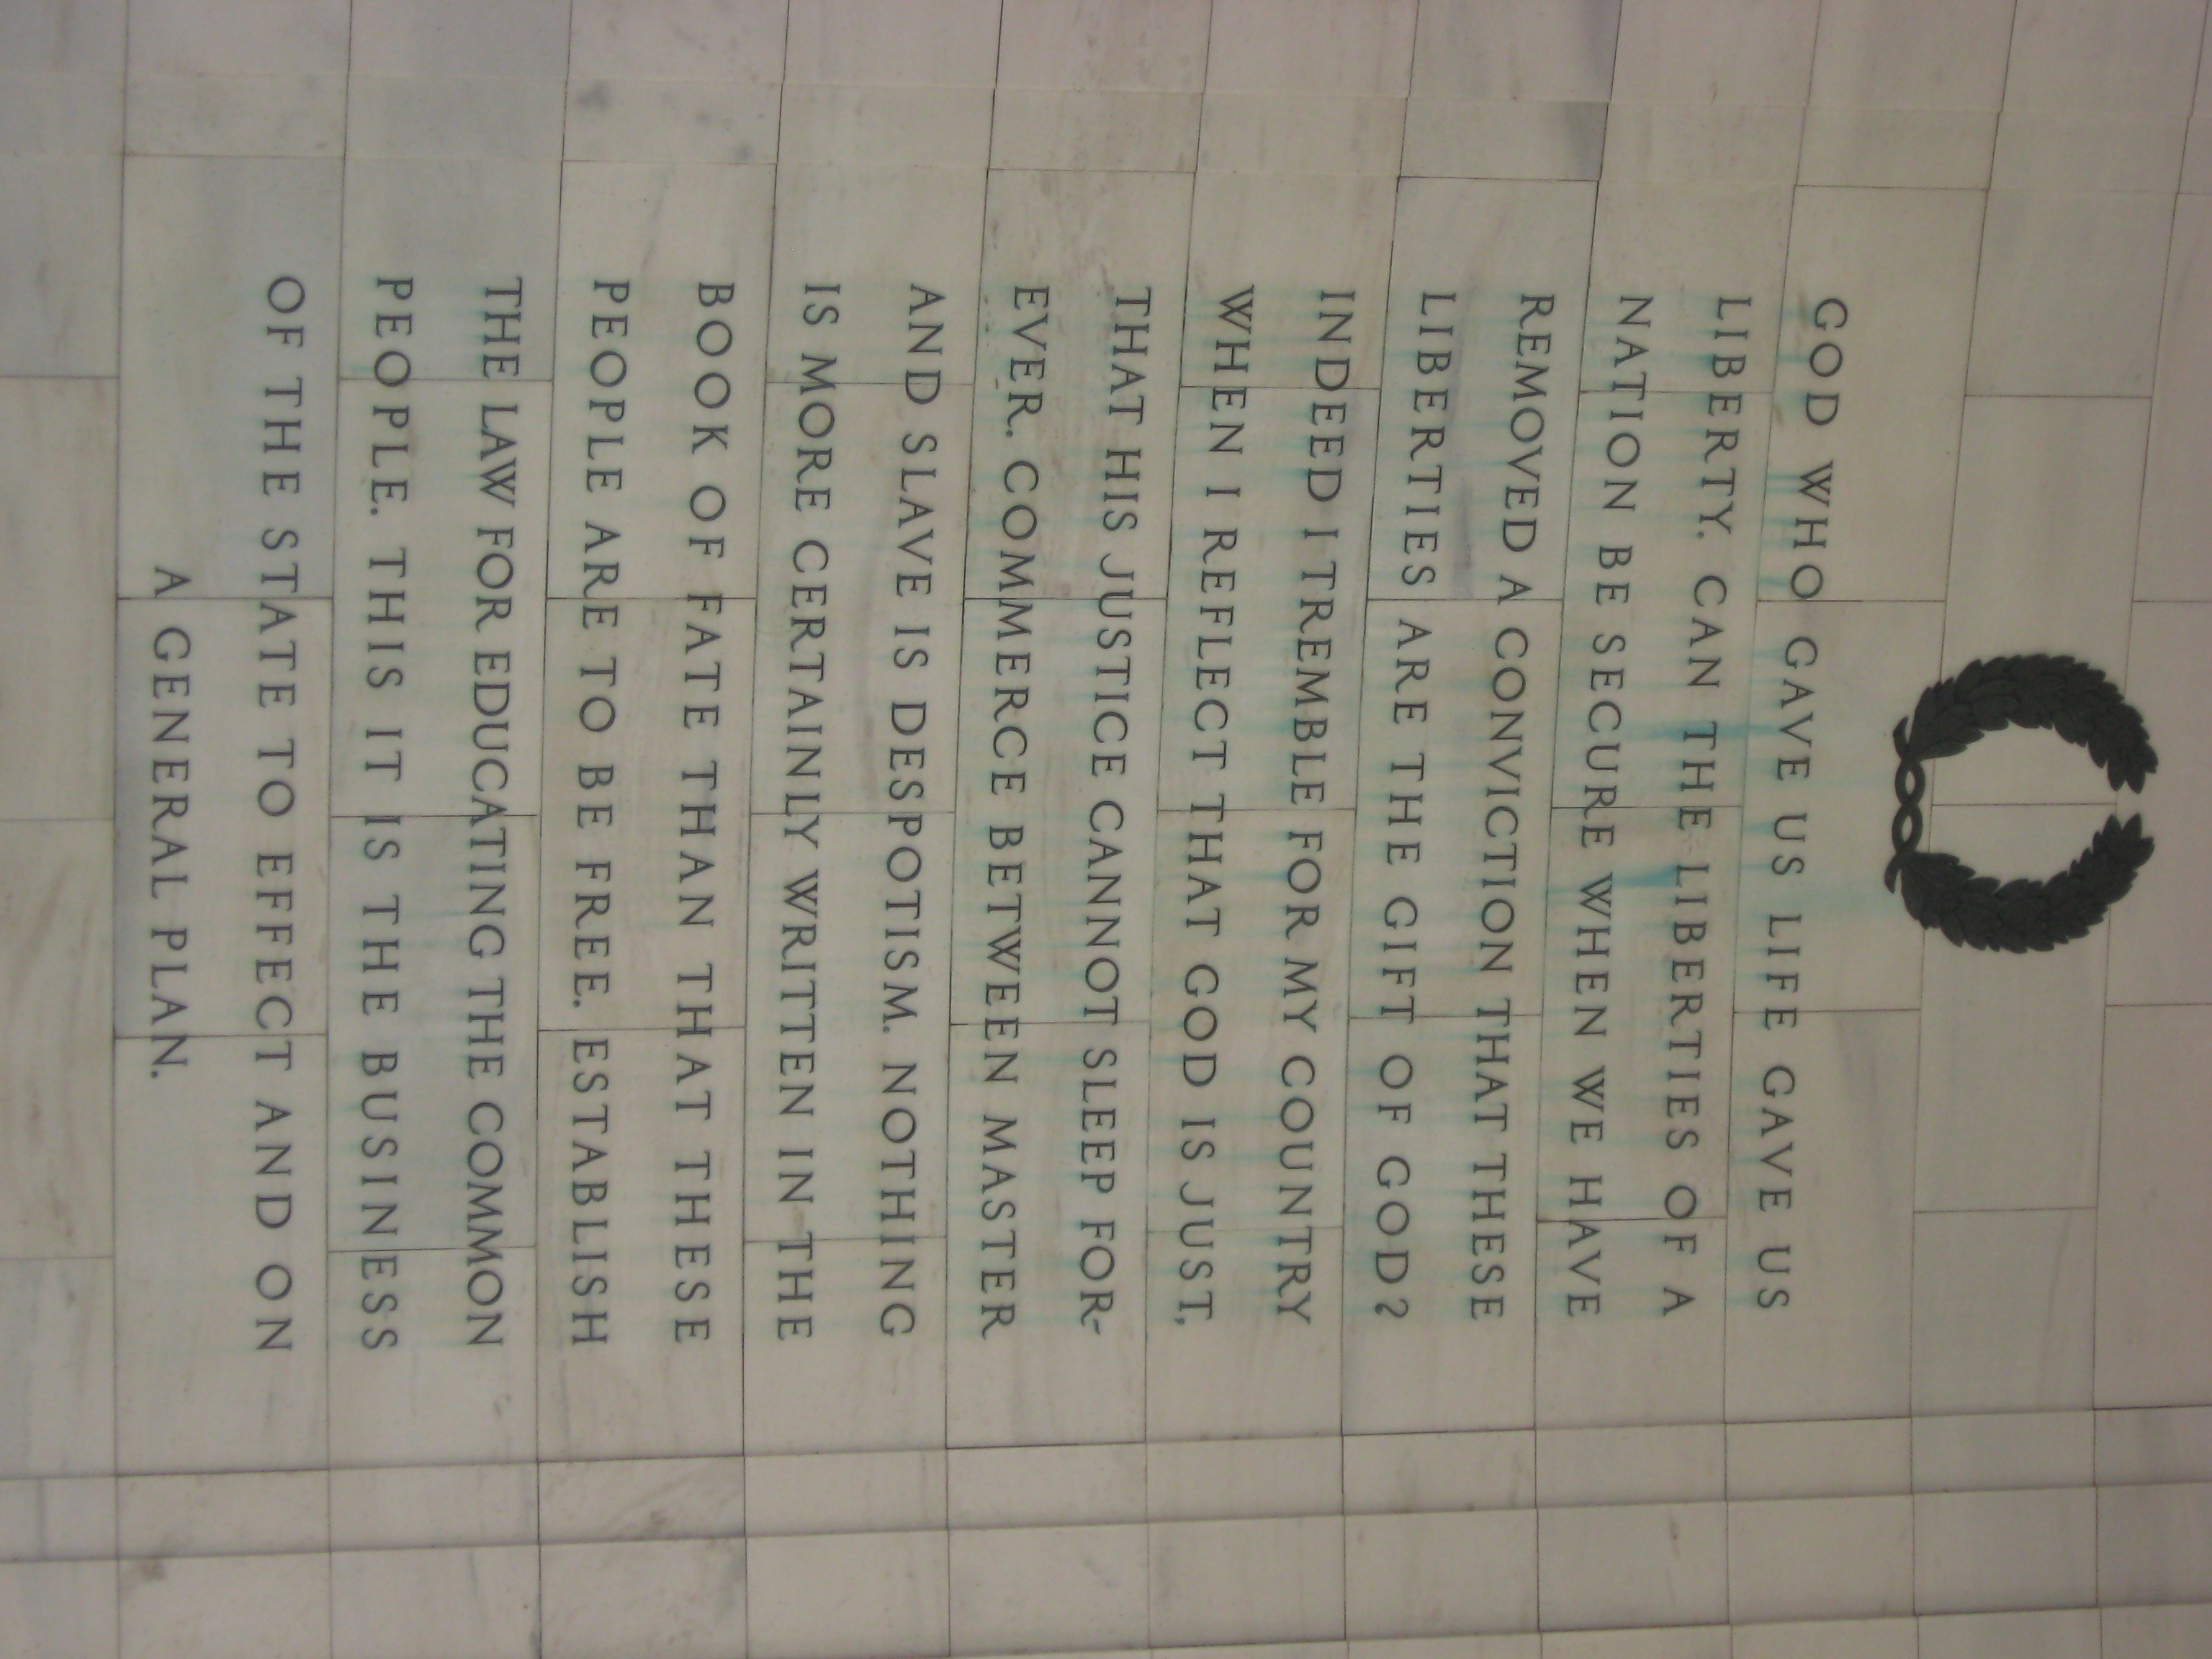 GOD WHO GAVE US LIFE GAVE US
LIBERTY. CAN THE LIBERTIES OF A
NATION BE SECURE WHEN WE HAVE
REMOVED A CONVICTION THAT THESE
LIBERTIES ARE THE GIFT OF GOD?
INDEED I TREMBLE FOR MY COUNTRY
WHEN I REFLECT THAT GOD IS JUST,
THAT HIS JUSTICE CANNOT SLEEP FOR-
EVER. COMMERCE BETWEEN MASTER
AND SLAVE IS DESPOTISM. NOTHING
IS MORE CERTAINLY WRITTEN IN THE
BOOK OF FATE THAN THAT THESE
PEOPLE ARE TO BE FREE. ESTABLISH
THE LAW FOR EDUCATING THE COMMON
PEOPLE. THIS IT IS THE BUSINESS
OF THE STATE TO EFFECT AND ON
A GENERAL PLAN.